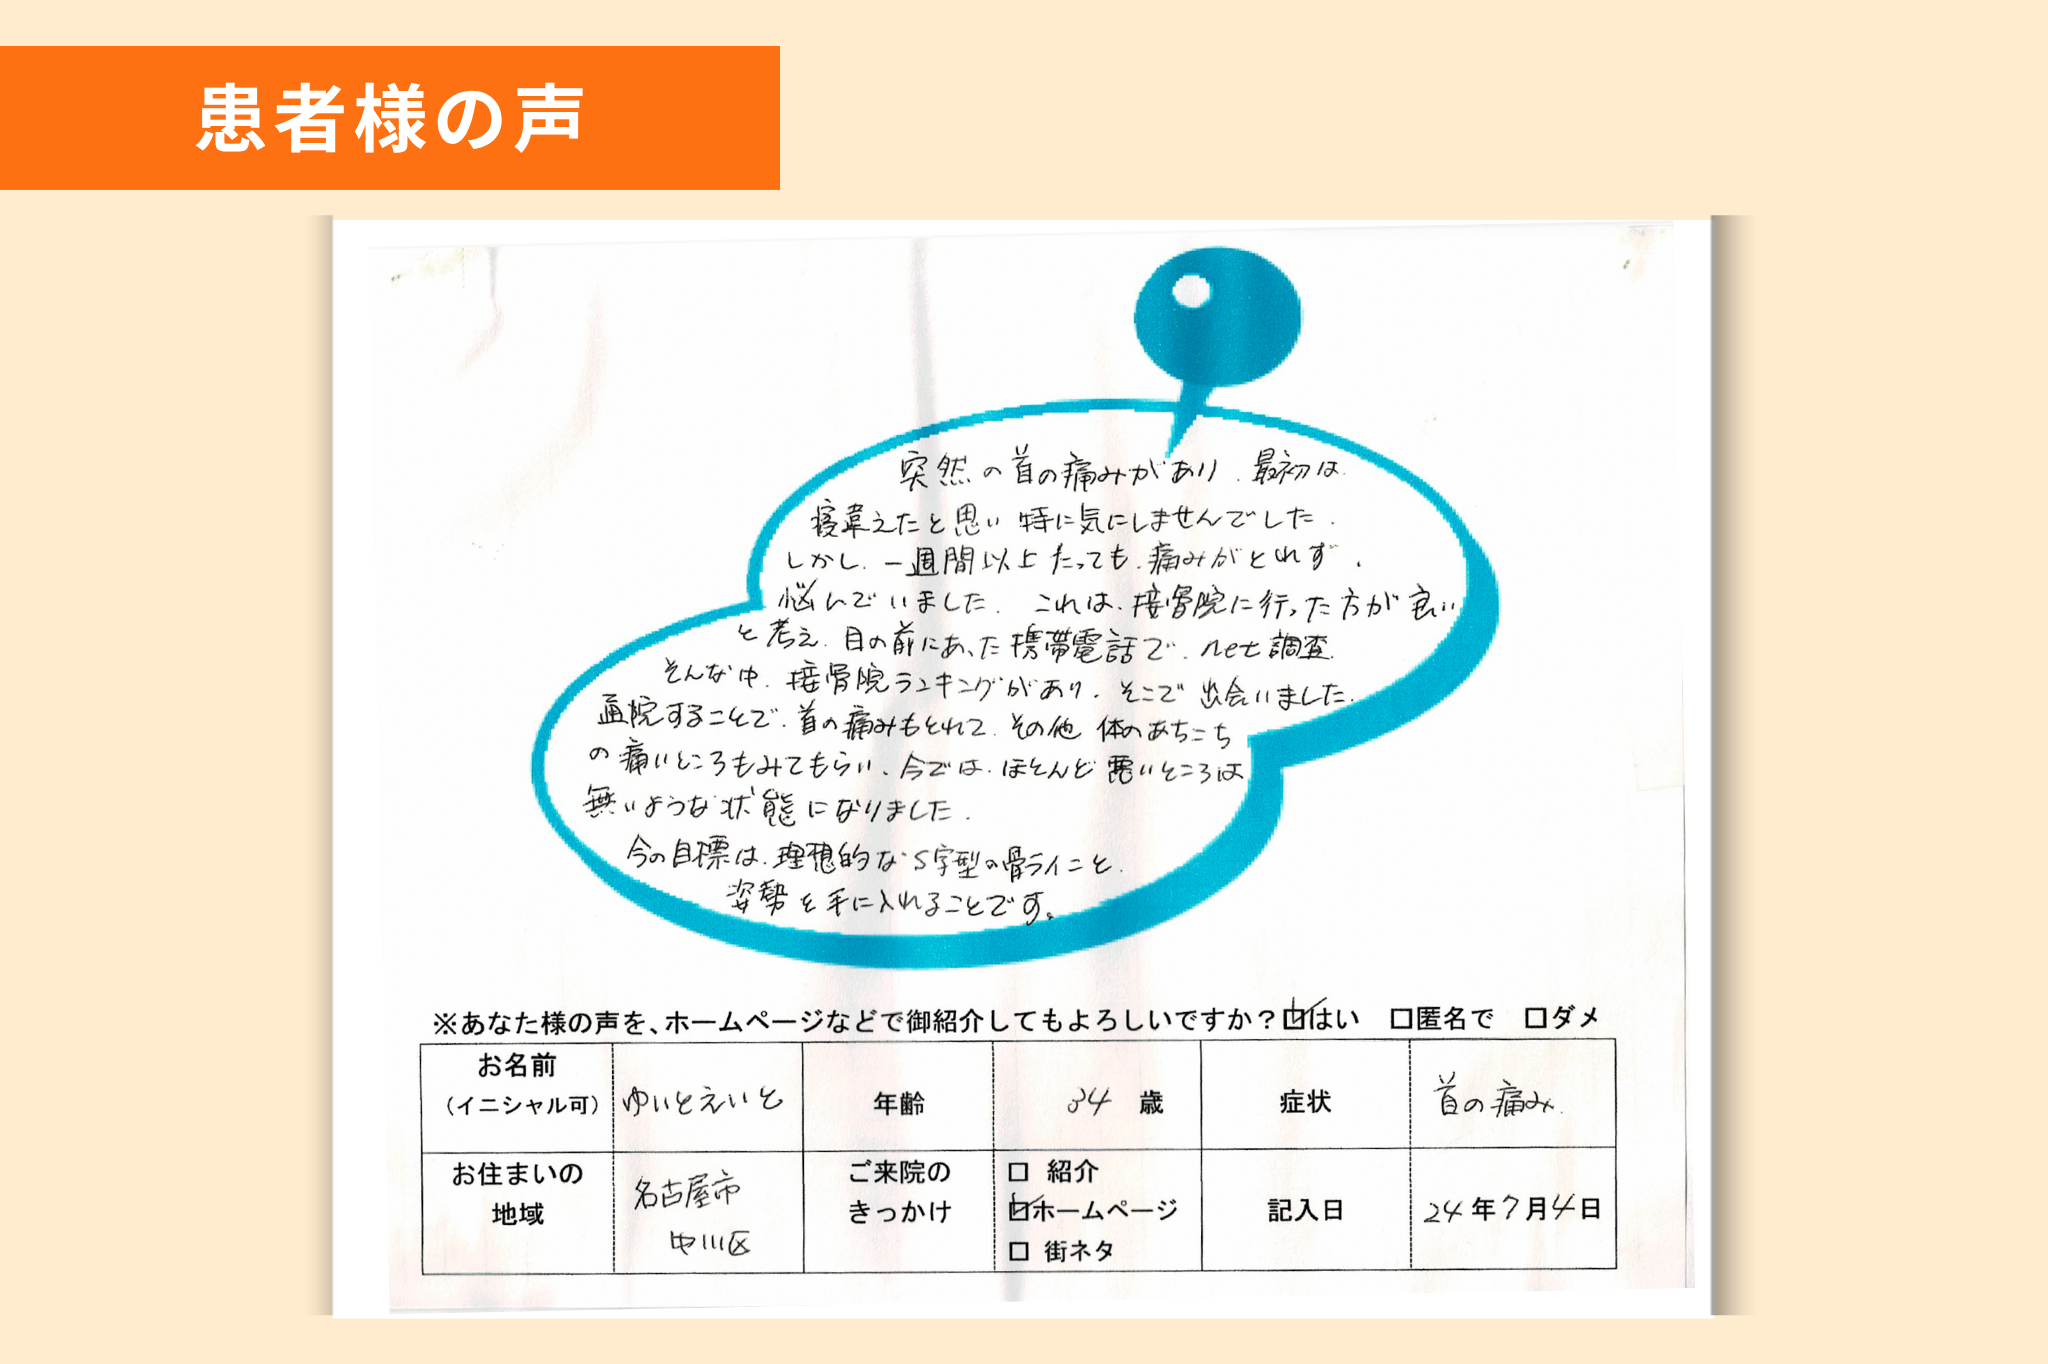 患者様の声
突然の首の痛みがあり、最初は、
寝違えたと思い特に気にしませんでした。
しかし、一週間以上たっても、痛みがとれず、
悩んでいました。これは、接骨院に行った方が良い
と考え、目の前にあった携帯電話で、net調査
そんな中、接骨院ランキングがあり、そこで出会いました。
通院することで、首の痛みもとれて、その他 体のあちこち
の痛いところもみてもらい、今では、ほとんど悪いところは
無いような状態になりました。
今の目標は、理想的なS字型の骨ラインと、
姿勢を手に入れることです。
※あなた様の声を、ホームページなどで御紹介してもよろしいですか？☑はい □匿名で □ダメ
お名前
（イニシャル可）
ゆいとえいと
年齢
34 歳
症状
首の痛み
お住まいの
地域
名古屋市
中川区
ご来院の
きっかけ
□ 紹介
☑ホームページ
□ 街ネタ
記入日
24年7月4日